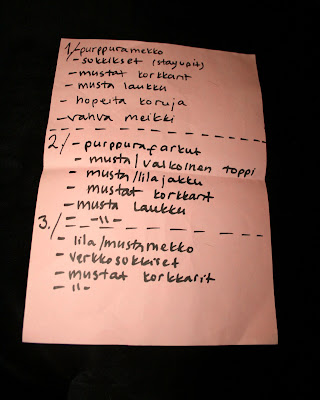 1/-purppuramekko
- sukkikset (stayupit)
- mustat korkkarit
- musta laukku
- hopeita koruja
- vahva meikki
2/ - purppurafarkut
- musta/valkoinen toppi
- musta/lila jakku
- mustat korkkarit
- musta laukku
- -11-
3./
- lila/mustamekko
- verkkosukkiset
- mustat korkkarit
- 11-